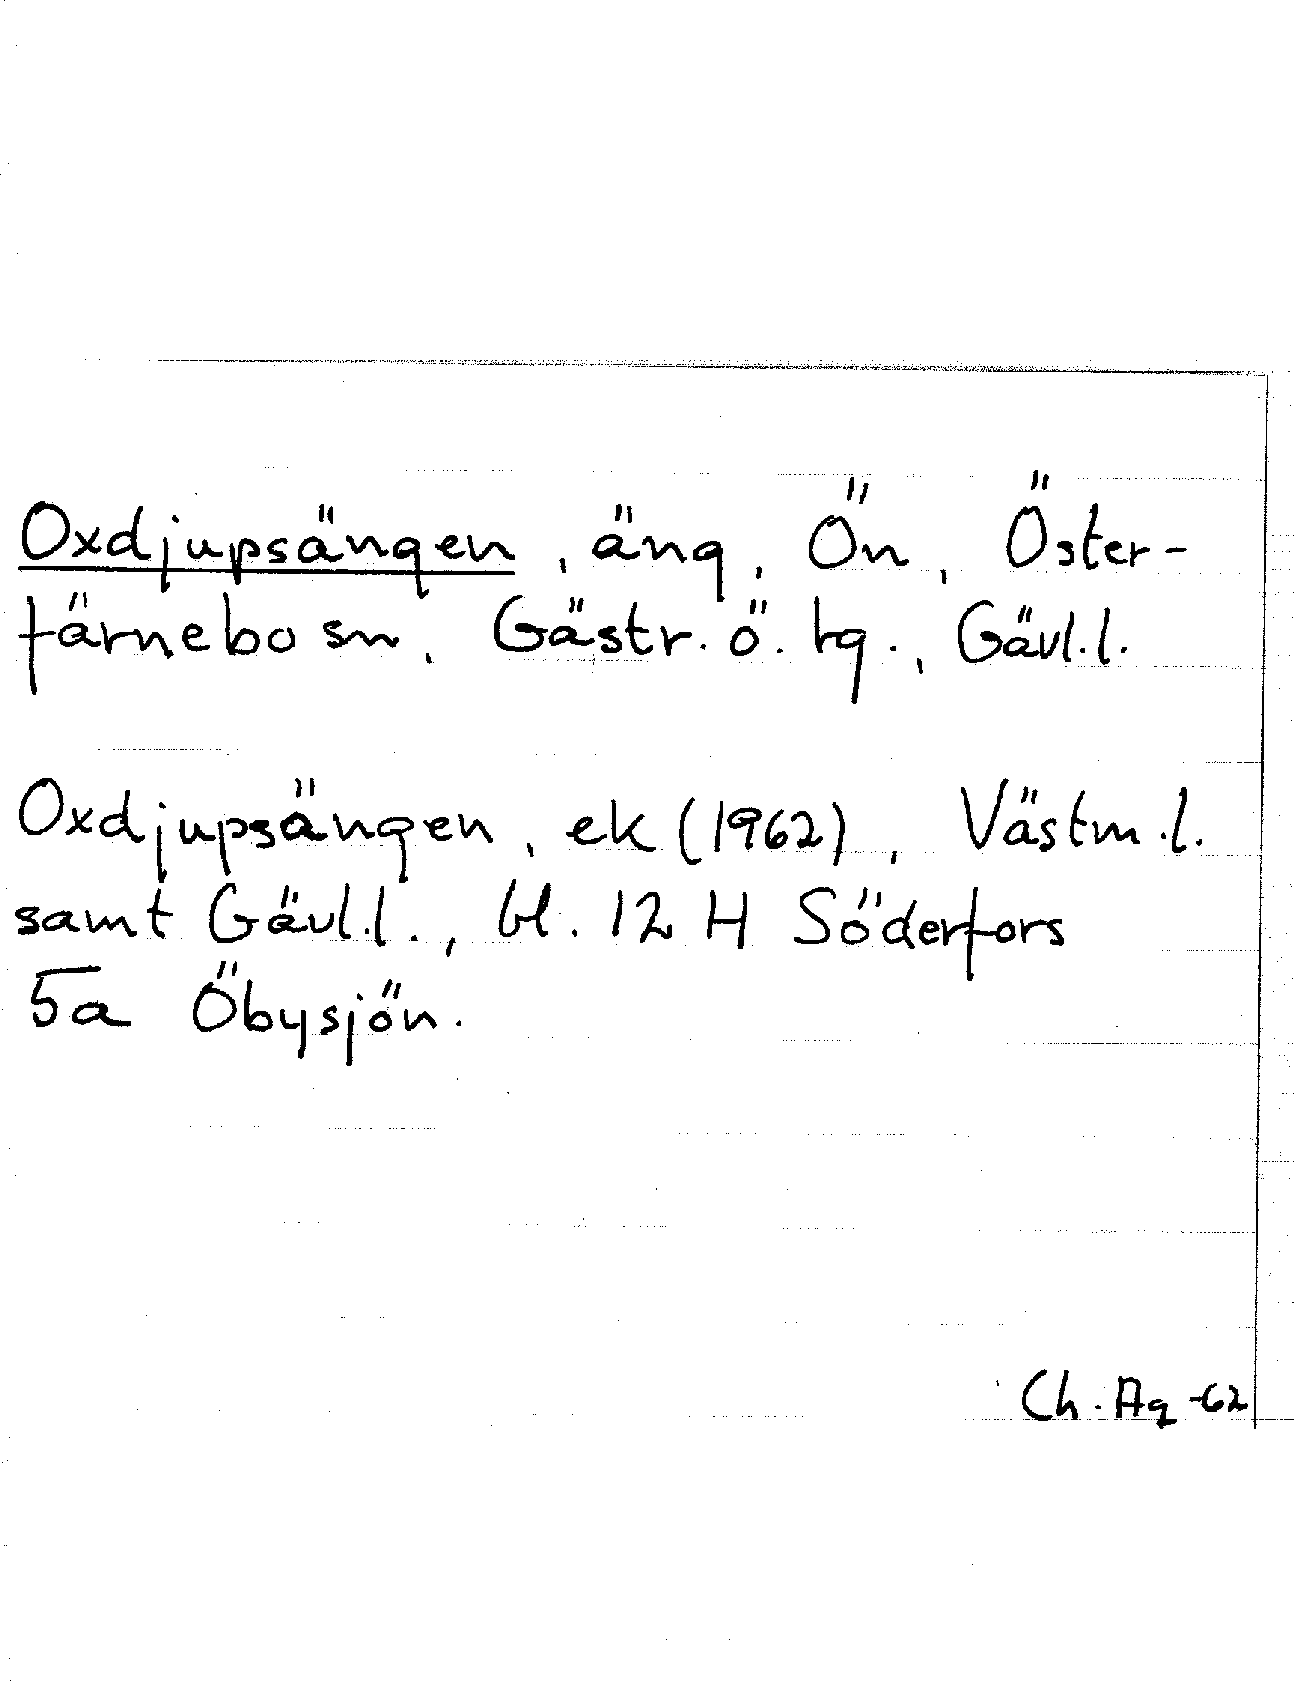 Oxdjupsängen, äng, Ön, Öster-
färnebo sn, Gästr. ö. tg., Gävl.l.
Oxdjupsängen, ek (1962), Västm.l.
samt Gävl.l., bl. 12 H Söderfors
5a Öbysjön.
Ch. Ag -62